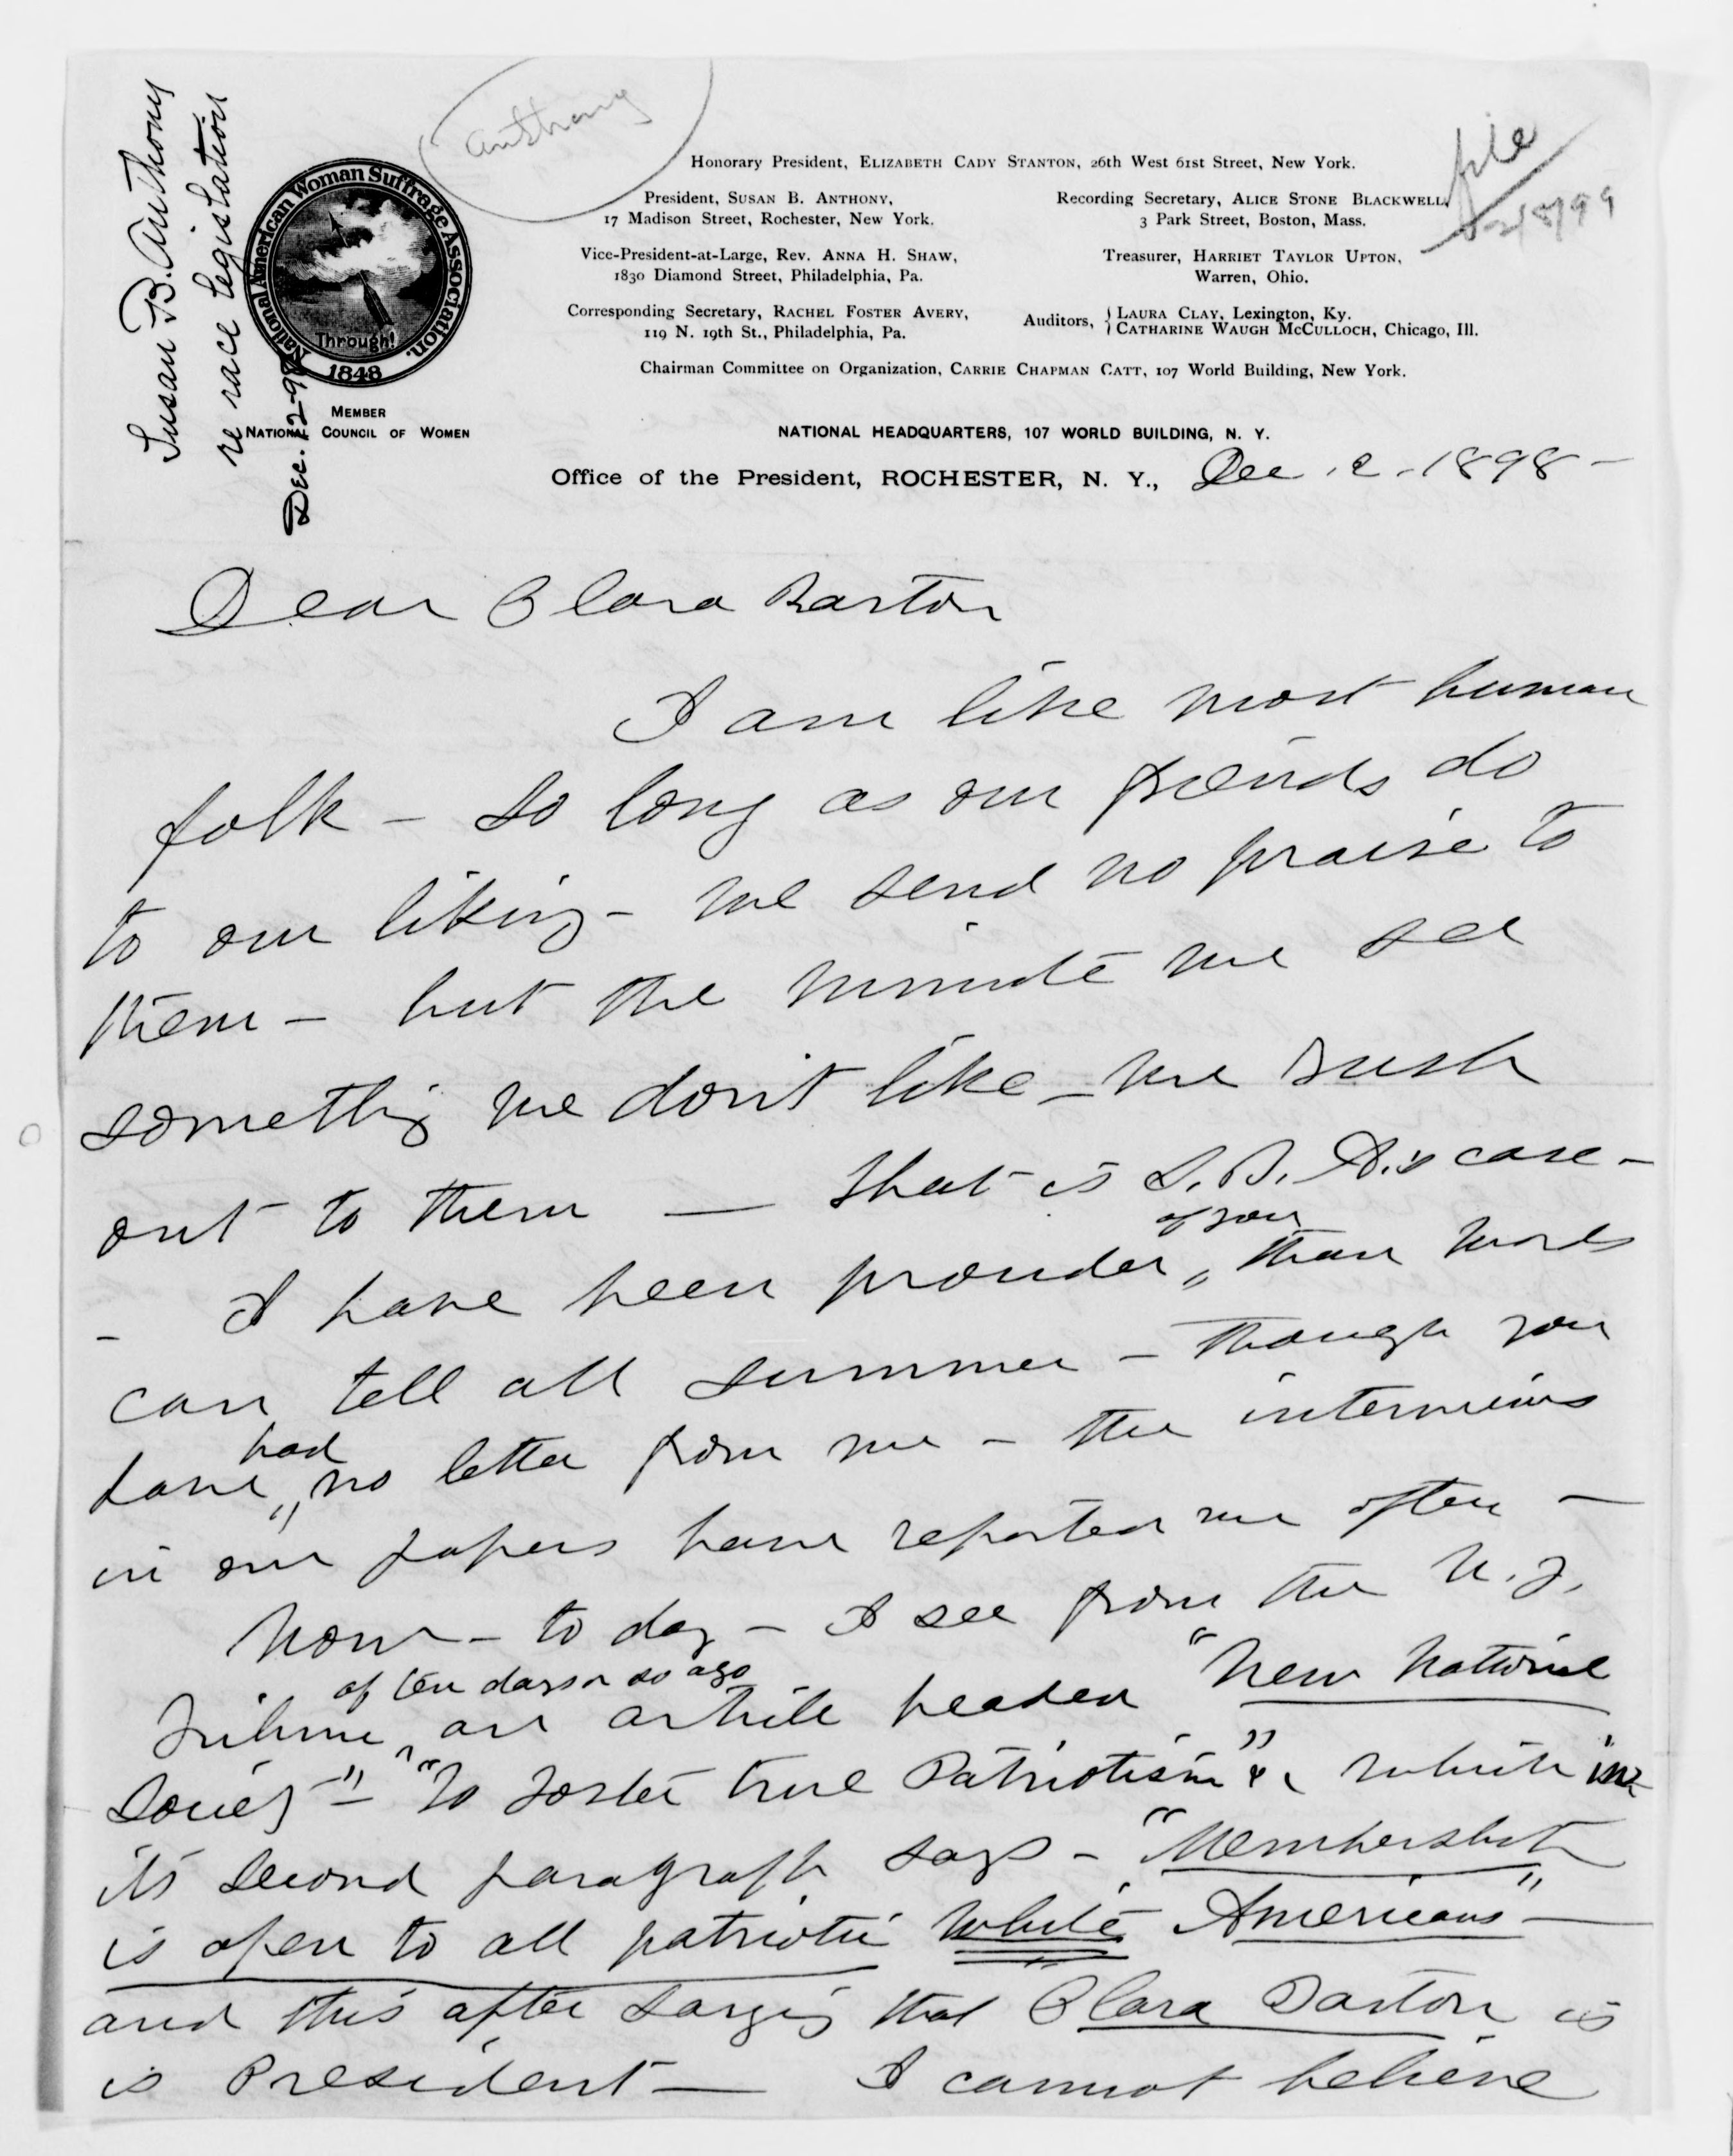 Susan B. Anthony
re race legislation
Dec. 12-98
Anthony
file
National American Woman Suffrage Association.
Through!
1848
MEMBER
NATIONAL COUNCIL OF WOMEN
Honorary President, ELIZABETH CADY STANTON, 26th West 61st Street, New York.
President, SUSAN B. ANTHONY,
17 Madison Street, Rochester, New York.
Recording Secretary, ALICE STONE BLACKWELL,
3 Park Street, Boston, Mass.
Vice-President-at-Large, Rev. ANNA H. SHAW,
1830 Diamond Street, Philadelphia, Pa.
Treasurer, HARRIET TAYLOR UPTON,
Warren, Ohio.
Corresponding Secretary, RACHEL FOSTER AVERY,
119 N. 19th St., Philadelphia, Pa.
Auditors, { LAURA CLAY, Lexington, Ky.
{ CATHARINE WAUGH MCCULLOCH, Chicago, Ill.
Chairman Committee on Organization, CARRIE CHAPMAN CATT, 107 World Building, New York.
NATIONAL HEADQUARTERS, 107 WORLD BUILDING, N. Y.
Office of the President, ROCHESTER, N. Y., Dec. 12. 1898-
Dear Clara Barton
I am like most human
folk - so long as our friends do
to our liking - we send no praise to
them - but the minute we see
something we don't like - we rush
out to them — That is S. B. A.'s case -
- I have been prouder of you than words
can tell all summer - though you
have had no letter from me - the interviews
in our papers have reported me often -
Now - to day - I see from the N. Y.
Tribune of ten days or so ago an article headed "New National
Society" - "To Foster true Patriotism" & which in
its second paragraph says - "Membership
is open to all patriotic white Americans" -
and this after saying that Clara Barton is
is President — I cannot believe